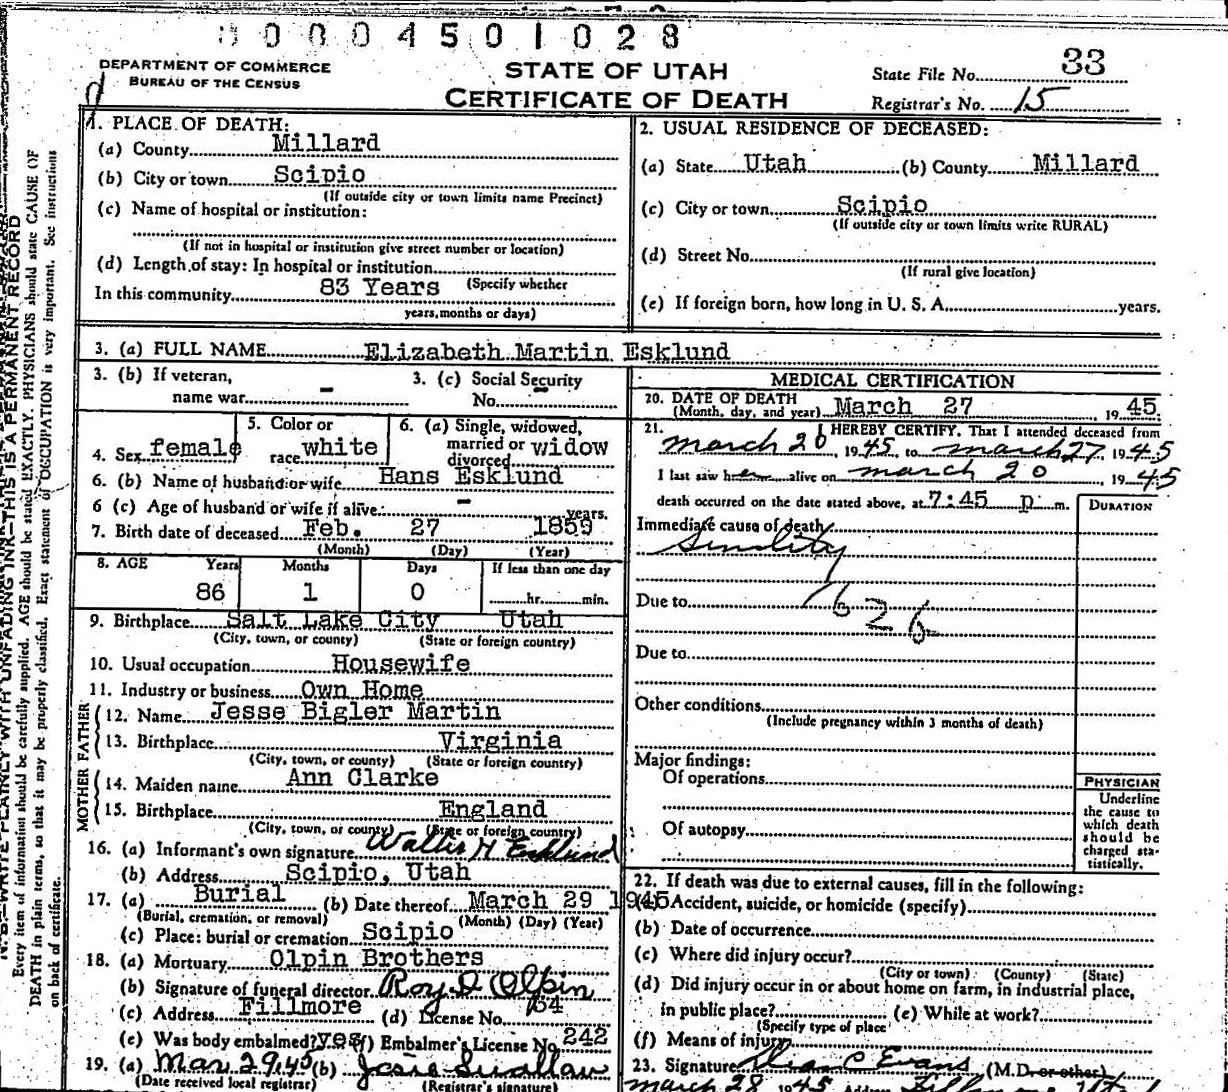 0004501028
DEPARTMENT OF COMMERCE
BUREAU OF THE CENSUS
STATE OF UTAH
CERTIFICATE OF DEATH
State File No. 33
Registrar's No. 15
1. PLACE OF DEATH:
(a) County Millard
(b) City or town Scipio
(If outside city or town limits name Precinct)
(c) Name of hospital or institution:
(If not in hospital or institution give street number or location)
(d) Length of stay: In hospital or institution
(Specify whether
In this community 83 Years
years, months or days)
2. USUAL RESIDENCE OF DECEASED:
(a) State Utah (b) County Millard
(c) City or town Scipio
(If outside city or town limits write RURAL)
(d) Street No.
(If rural give location)
(e) If foreign born, how long in U. S. A. years.
3. (a) FULL NAME Elizabeth Martin Esklund
3. (b) If veteran,
name war -
3. (c) Social Security
No. -
4. Sex female
5. Color or
race white
6. (a) Single, widowed,
married or
divorced widow
6. (b) Name of husband or wife Hans Esklund
6 (c) Age of husband or wife if alive: - years.
7. Birth date of deceased Feb. 27 1859
(Month) (Day) (Year)
8. AGE Years Months Days If less than one day
86 1 0 hr. min.
9. Birthplace Salt Lake City Utah
(City, town, or county) (State or foreign country)
10. Usual occupation Housewife
11. Industry or business Own Home
FATHER
12. Name Jesse Bigler Martin
13. Birthplace Virginia
(City, town, or county) (State or foreign country)
MOTHER
14. Maiden name Ann Clarke
15. Birthplace England
(City, town, or county) (State or foreign country)
16. (a) Informant's own signature Walter H Esklund
(b) Address Scipio, Utah
17. (a) Burial (b) Date thereof March 29 1945
(Burial, cremation, or removal) (Month) (Day) (Year)
(c) Place: burial or cremation Scipio
18. (a) Mortuary Olpin Brothers
(b) Signature of funeral director Roy D Olpin
(c) Address Fillmore (d) License No. 64
(e) Was body embalmed? yes (f) Embalmer's License No. 242
19. (a) Mar 29, 45 (b) Josie Swallow
(Date received local registrar) (Registrar's signature)
MEDICAL CERTIFICATION
20. DATE OF DEATH
(Month, day, and year) March 27 1945
21. I HEREBY CERTIFY, That I attended deceased from
march 20, 1945, to march 27, 1945
I last saw her alive on march 20 1945
death occurred on the date stated above, at 7:45 p m.
DURATION
Immediate cause of death
Senility
Due to 1626
Due to
Other conditions
(Include pregnancy within 3 months of death)
Major findings:
Of operations
Of autopsy
PHYSICIAN
Underline
the cause to
which death
should be
charged sta-
tistically.
22. If death was due to external causes, fill in the following:
(a) Accident, suicide, or homicide (specify)
(b) Date of occurrence
(c) Where did injury occur?
(City or town) (County) (State)
(d) Did injury occur in or about home on farm, in industrial place,
in public place? (e) While at work?
(Specify type of place
(f) Means of injury
23. Signature C Evans (M.D. or other)
march 28 1945 Address
N. B.—WRITE PLAINLY WITH UNFADING INK—THIS IS A PERMANENT RECORD
Every item of information should be carefully supplied. AGE should be stated EXACTLY. PHYSICIANS should state CAUSE OF
DEATH in plain terms, so that it may be properly classified. Exact statement of OCCUPATION is very important. See instructions
on back of certificate.